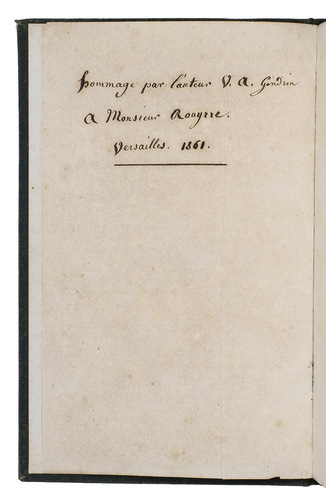 hommage par l'auteur V. A. Gendrin
A Monsieur Rouyrre.
Versailles. 1861.